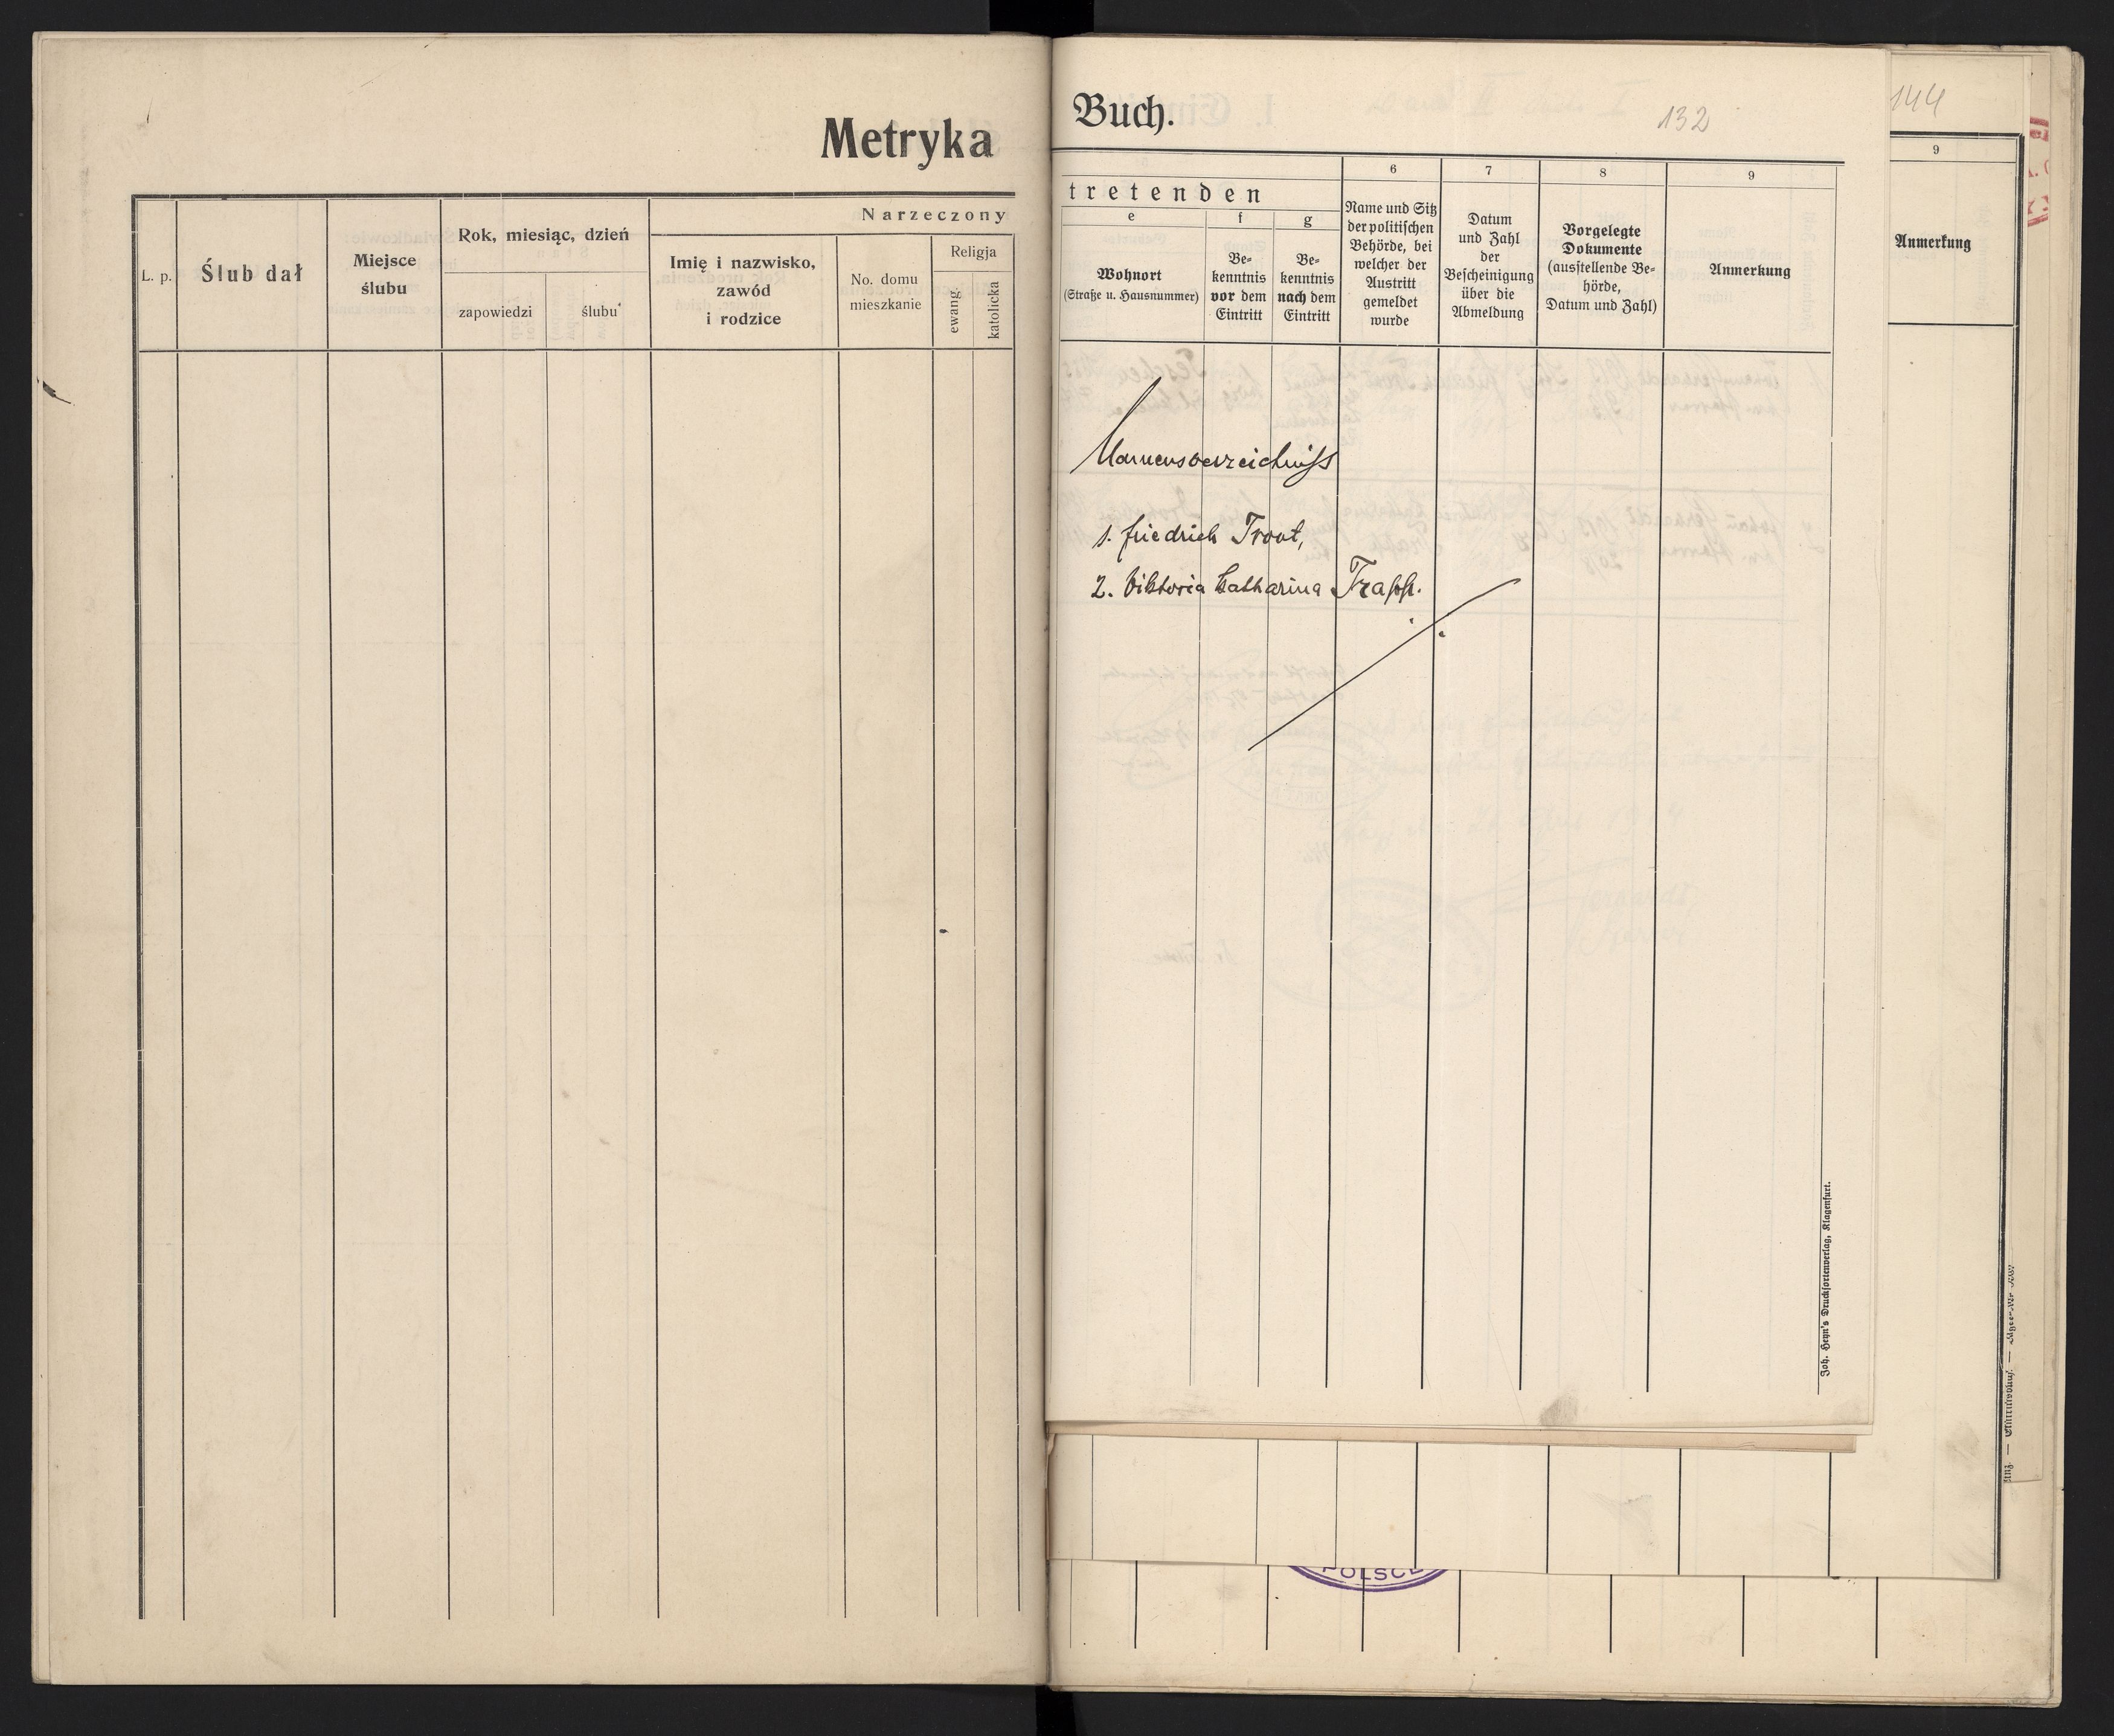 Metryka
Narzeczony
L. p.
Ślub dał
Miejsce
ślubu
Rok, miesiąc, dzień
zapowiedzi
ślubu
Imię i nazwisko,
zawód
i rodzice
No. domu
mieszkanie
Religja
ewang.
katolicka
Buch.
132
tretenden
e
Wohnort
(Straße u. Hausnummer)
f
Be-
kenntnis
vor dem
Eintritt
g
Be-
kenntnis
nach dem
Eintritt
6
Name und Sitz
der politischen
Behörde, bei
welcher der
Austritt
gemeldet
wurde
7
Datum
und Zahl
der
Bescheinigung
über die
Abmeldung
8
Vorgelegte
Dokumente
(ausstellende Be-
hörde,
Datum und Zahl)
9
Anmerkung
Namensverzeichniss
1. Friedrich Troot,
2. Viktoria Catharina Trapp.
Joh. Heyn's Drucksortenverlag, Klagenfurt.
144
9
Anmerkung
POLSCE